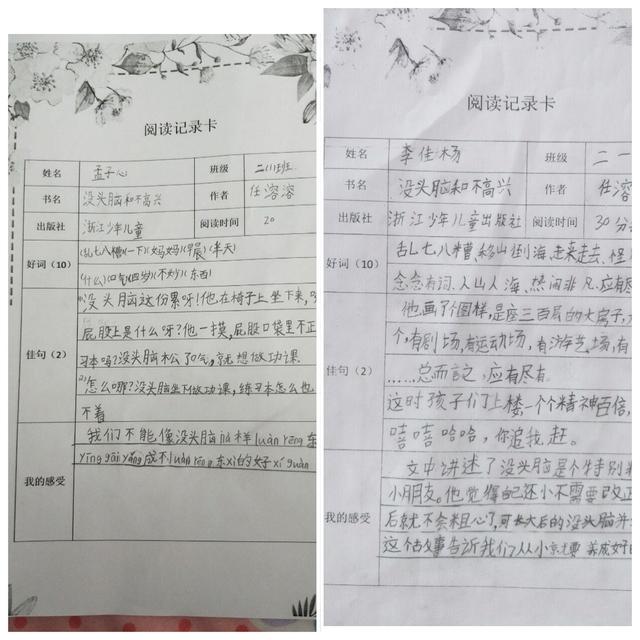 阅读记录卡
姓名 孟子心 班级 二(1)班
书名 没头脑和不高兴 作者 任溶溶
出版社 浙江少年儿童 阅读时间 20
好词（10）
(乱七八糟)(一下)(妈妈)(早晨)(半天)
(什么)(口气)(四岁)(不妙)(东西)
佳句（2）
"没头脑这份累呀!他在椅子上坐下来,
屁股上是什么呀?他一摸,屁股口袋里不正
习本吗?没头脑松了口气,就想做功课.
2)怎么哪?没头脑坐下做功课,练习本怎么也
不着
我的感受
我们不能像没头脑 样luàn rēng东
yīng gāi yǎng成不luàn rēng东xi的好xí guàn
阅读记录卡
姓名 李佳杨 班级 二一
书名 没头脑和不高兴 作者 任溶
出版社 浙江少年儿童出版社 阅读时间 30分
好词（10）
乱七八糟、移山倒海、走来走去、怪
念念有词、人山人海、热闹非凡、应有尽
佳句（2）
他画了个图样,是座三百层的大房子,
个,有剧场,有运动场,有游艺场,有
……总而言之,应有尽有.
这时孩子们上楼,一个个精神百倍,
嘻嘻哈哈,你追我赶.
我的感受
文中讲述了没头脑是个特别
小朋友。他觉得自己还小不需要改正
后就不会粗心了,可长大后的没头脑并
这个故事告诉我们从小就要养成好的